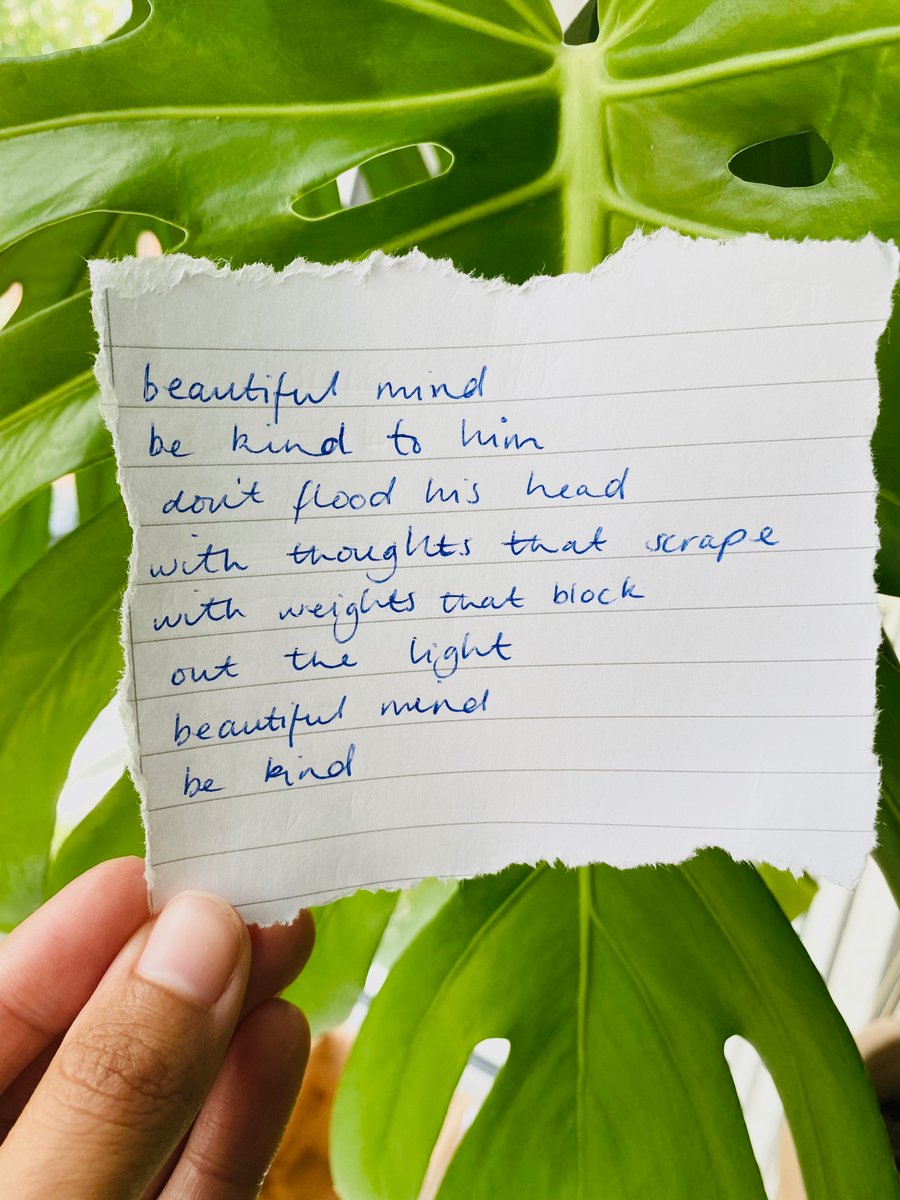 beautiful mind
be kind to him
don't flood his head
with thoughts that scrape
with weights that block
out the light
beautiful mind
be kind